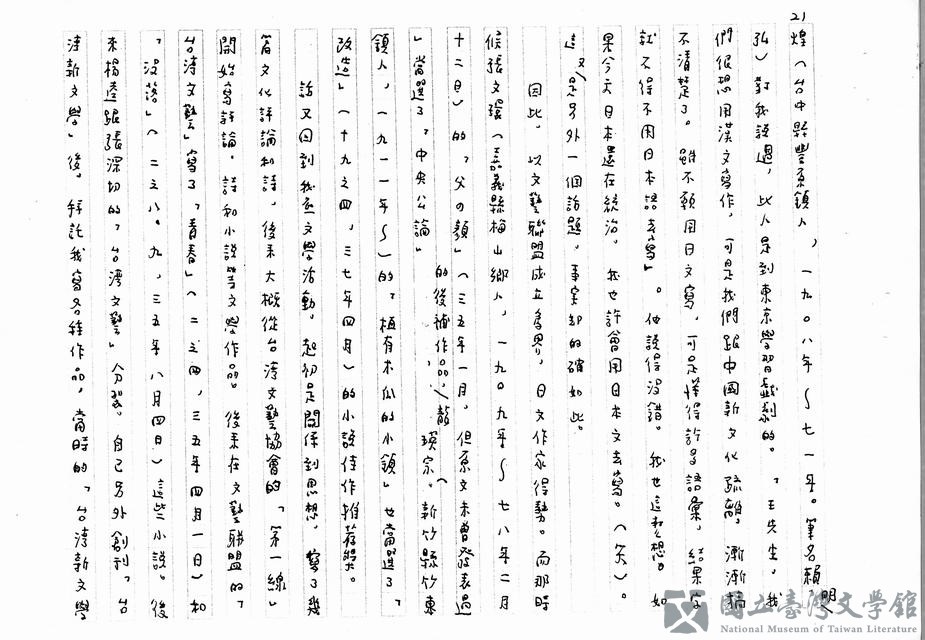 21
煌(台中縣豐原鎮人,一九〇八年~七一年。筆名賴明
弘)對我說過,此人是到東京學習戲劇的。「王先生,我
們很想用漢文寫作,可是我們跟中國新文化疏離,漸漸搞
不清楚了。雖不願用日文寫,可是懂得許多語彙,結果
就不得不用日本語去寫」。他說得沒錯。我也這麼想。如
果今天日本還在統治,我也許會用日本文去寫。(笑)。
這又是另外一個話題,事實卻的確如此。
因此,以文藝聯盟成立為界,日文作家得勢。而那時
候張文環(嘉義縣梅山鄉人,一九〇九年~七八年二月
十二日)的「父の顏」(三五年一月,但原文未曾發表過
)當選了「中央公論」的後補作品,龍瑛宗(新竹縣竹東
鎮人,一九一一年~)的「植有木瓜的小鎮」也當選了「
改造」(十九之四,三七年四月)的小說佳作推荐獎。
話又回到我底文學活動,起初是關係到思想,寫了幾
篇文化評論和詩,後來大概從台灣文藝協會的「第一線」
開始寫評論,詩和小說等文學作品。後來在文藝聯盟的「
台灣文藝」寫了「青春」(二之四,三五年四月一日)和
「沒落」(二之八。九,三五年八月四日)這些小說。後
來楊逵跟張深切的「台灣文藝」分裂,自己另外創刊「台
灣新文學」後,拜託我寫各種作品,當時的「台灣新文學
國立臺灣文學館
National Museum of Taiwan Literature